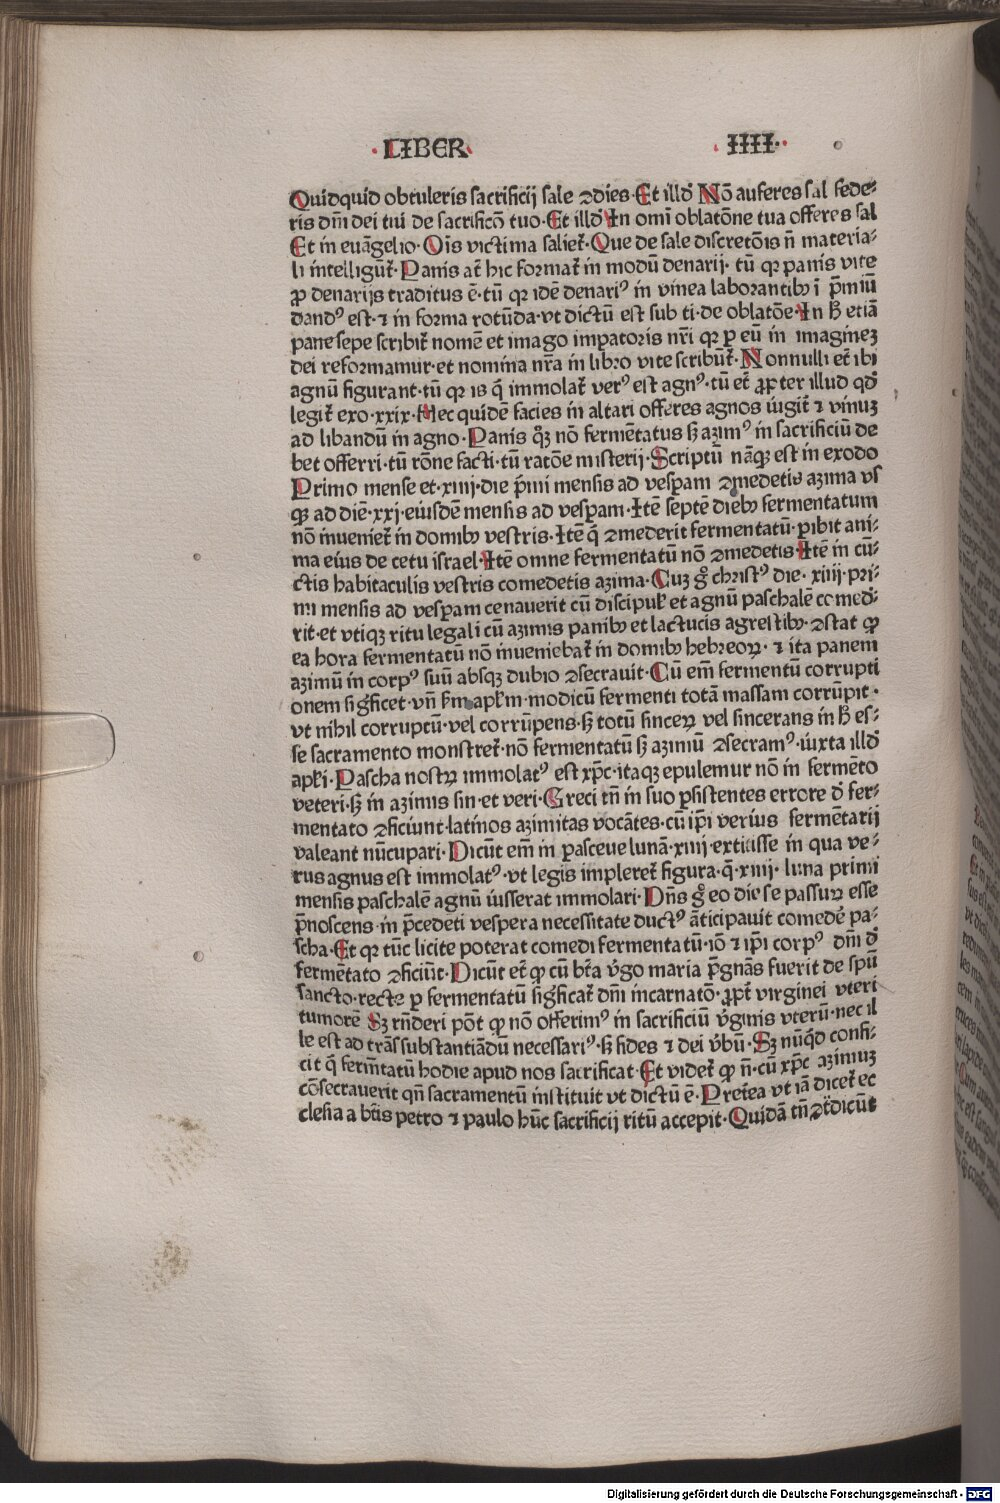 LIBER IIII
Quidquid obtuleris sacrificij sale ꝯdies· Et illđ Nō auferes sal fede-
ris dn̄i dei tui de sacrificō tuo· Et illđ In omī oblatōne tua offeres sal
Et in euāgelio· Oīs victima salieť· Que de sale discretōis n̄ materia-
li intelligūť· Panis ať hic formať in modū denarij· tū qꝛ panis vite
ꝓ denarijs traditus ē· tū qꝛ idē denariꝰ in vinea laborantibꝫ ī p̄miū
dandꝰ est· ⁊ in forma rotūda· vt dictū est sub ti· de oblatōe· In ħ etiā
pane sepe scribiť nomē et imago impatoris nr̄i qꝛ ꝑ eū in imaginez
dei reformamur· et nomina nr̄a in libro vite scribūť· Nonnulli eť ibi
agnū figurant· tū qꝛ is q̄ immolať verꝰ est agnꝰ· tū eť ꝓpter illud qđ
legiť exo· xxix· Hec quidē facies in altari offeres agnos iúgiť ⁊ vinuz
ad libandū in agno· Panis qͦꝫ nō fermētatus sꝫ azimꝰ in sacrificiū de
bet offerri· tū rōne facti· tū ratōe misterij· Scriptū nāqꝫ est in exodo
Primo mense et· xiiij· die p̄mi mensis ad vesꝑam ꝯmedetis azima vs
qꝫ ad diē· xxj· eiusdē mensis ad vesꝑam· Itē septē diebꝫ fermentatum
nō inuenieť in domibꝫ vestris· Itē q̄ ꝯmederit fermentatū· ꝑibit ani-
ma eius de cetu israel· Itē omne fermentatū nō ꝯmedetis· Itē in cū-
ctis habitaculis vestris comedetis azima· Cuz gͦ christꝰ die· xiiij· pri-
mi mensis ad vesꝑam cenauerit cū discipuł et agnū paschalē comeđ-
rit· et vtiqꝫ ritu legali cū azimis panibꝫ et lactucis agrestibꝫ· ꝯstat ꝙ
ea hora fermentatū nō inueniebať in domibꝫ hebreoꝝ· ⁊ ita panem
azimū in corpꝰ suū absqꝫ dubio ꝯsecrauit· Cū em̄ fermentū corrupti
onem sigͥficet· vn̄ ẜm apłm· modicū fermenti totā massam corrūpit·
vt nihil corruptū· vel corrūpens· sꝫ totū sinceꝝ vel sincerans in ħ es-
se sacramento monstreť· nō fermentatū sꝫ azimū ꝯsecramꝰ· iuxta illđ
apłi· Pascha nostꝝ immolatꝰ est xp̄c· itaqꝫ epulemur nō in fermēto
veteri· sꝫ in azimis sin· et veri· Greci tn̄ in suo ꝑsistentes errore đ fer-
mentato ꝯficiunt· latinos azimitas vocātes· cū ip̄i verius fermētarij
valeant nūcupari· Dicūt em̄ in ꝑasceue lunā· xiiij· extitisse in qua ve-
rus agnus est immolatꝰ· vt legis impleret figura· q̄· xiiij· luna primi
mensis paschalē agnū iusserat immolari· Dn̄s gͦ eo die se passuꝝ esse
p̄noscens· in p̄cedeti vespera necessitate ductꝰ āticipauit comedē pa-
scha· Et qꝛ tūc licite poterat comedi fermentatū· iō ⁊ ip̄i corpꝰ dn̄i đ
fermētato ꝯficiūt· Dicūt eť ꝙ cū bt̄a vͦgo maria p̄gnās fuerit de spū
sancto· recte ꝑ fermentatū sigͥficať dn̄i incarnatō· ꝓpť virginei vteri
tumorē Sꝫ rn̄deri pōt ꝙ nō offerimꝰ in sacrificiū vͦginis vterū· nec il
le est ad trāssubstantiādū necessariꝰ· sꝫ fides ⁊ dei vͦbū· Sꝫ nūqͥd confi-
cit q̄ ferm̄tatū hodie apud nos sacrificat· Et videť ꝙ n̄· cū xp̄c azimuz
cōsecrauerit qn̄ sacramentū instituit vt dictū ē· Preťea vt iā diceť ec
clesia a bt̄is petro ⁊ paulo hūc sacrificij ritū accepit· Quidā tn̄ ꝯť dicūt
Digitalisierung gefördert durch die Deutsche Forschungsgemeinschaft · DFG